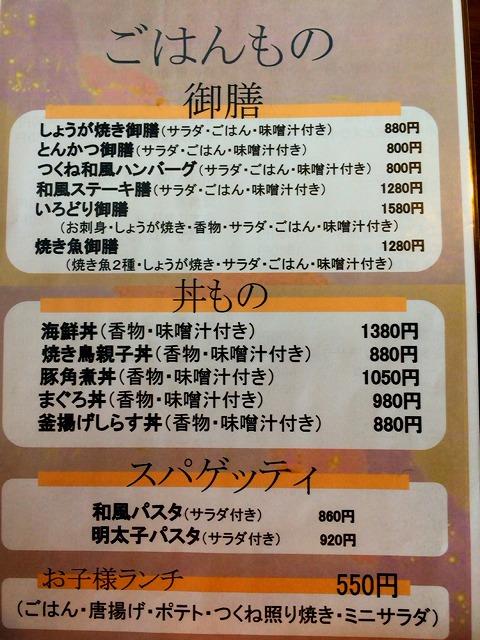 ごはんもの
御膳
しょうが焼き御膳(サラダ・ごはん・味噌汁付き) 880円
とんかつ御膳(サラダ・ごはん・味噌汁付き) 800円
つくね和風ハンバーグ(サラダ・ごはん・味噌汁付き) 800円
和風ステーキ膳(サラダ・ごはん・味噌汁付き) 1280円
いろどり御膳 1580円
(お刺身・しょうが焼き・香物・サラダ・ごはん・味噌汁付き)
焼き魚御膳 1280円
(焼き魚2種・しょうが焼き・サラダ・ごはん・味噌汁付き)
丼もの
海鮮丼(香物・味噌汁付き) 1380円
焼き鳥親子丼(香物・味噌汁付き) 880円
豚角煮丼(香物・味噌汁付き) 1050円
まぐろ丼(香物・味噌汁付き) 980円
釜揚げしらす丼(香物・味噌汁付き) 880円
スパゲッティ
和風パスタ(サラダ付き) 860円
明太子パスタ(サラダ付き) 920円
お子様ランチ 550円
(ごはん・唐揚げ・ポテト・つくね照り焼き・ミニサラダ)